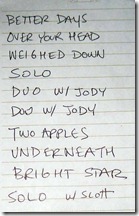 BETTER DAYS
OVER YOUR HEAD
WEIGHED DOWN
SOLO
DUO W/ JODY
DUO W/ JODY
TWO APPLES
UNDERNEATH
BRIGHT STAR
SOLO W/ SCOTT